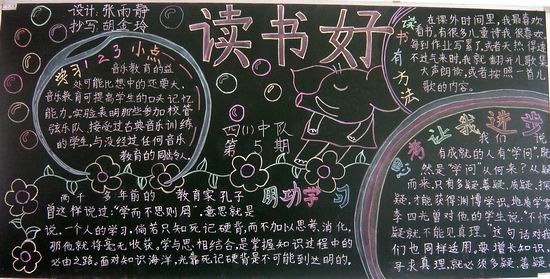 设计:张雨静
抄写:胡金玲
读书好
四(1)中队
第5期
学习123小点
音乐教育的益
处可能比想中的还要大,
音乐教育可提高学生的口头记忆
能力,实验表明那些参加校管
弦乐队,接受过古典音乐训练
的学生,与没经过任何音乐
教育的同龄人。
读书有方法
在课外时间里,我最喜欢
看书,有很多儿童诗我很喜欢,
每到作业写累了,或者天热得透
不过气来时,我就翻开儿歌集
大声朗读,或者按照一首儿
歌的内容。
思考让我进步
我们说
有成就的人有“学问”,既
然是“学问”从何来?从疑
而来,只有多疑、善疑、质疑、探
疑,才能获得渊博学识,地质学家
李四光曾对他的学生说,“不怀
疑就不能见真理。”这句话对我
们也同样适用,要增长知识,
寻求真理,就必须多疑、善疑
用功学习
两千多年前的教育家孔子
曾这样说过:“学而不思则罔”,意思就是
说,一个人的学习,倘若只知死记硬背,而不加以思考、消化,
那他就将毫无收获。学与思相结合,是掌握知识过程中的
必由之路。面对知识海洋,光靠死记硬背是不可能到达明的。